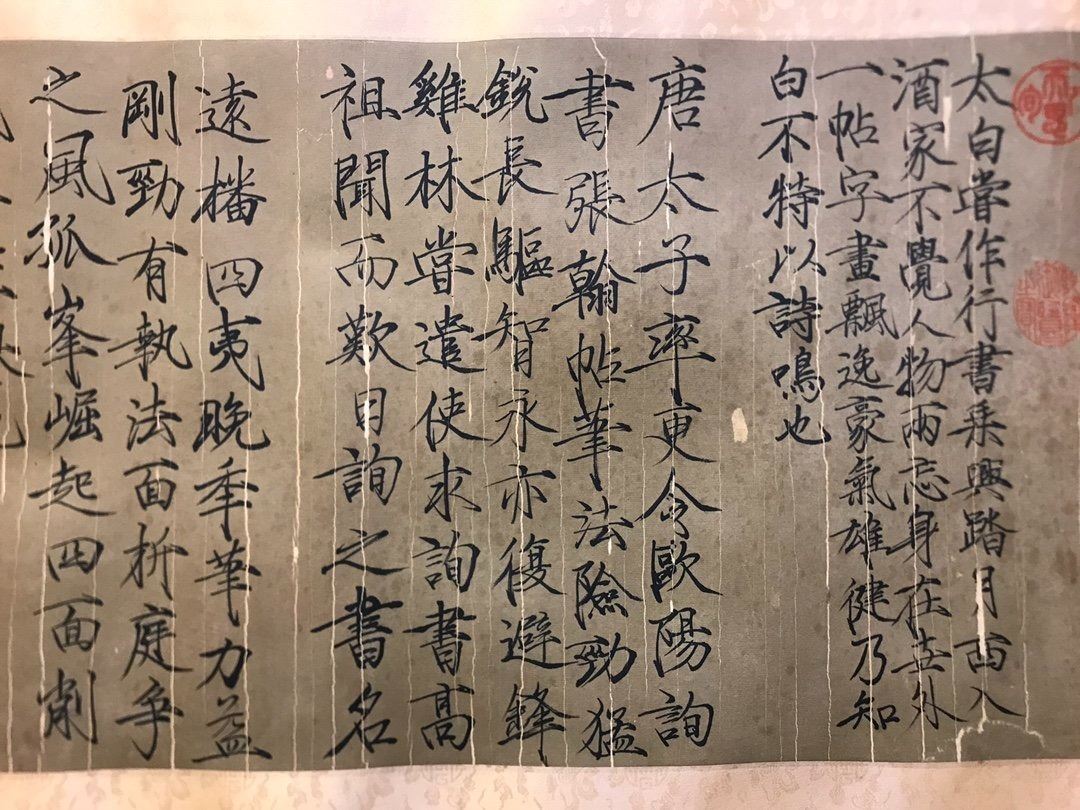 太白嘗作行書乘興踏月西入
酒家不覺人物兩忘身在世外
一帖字畫飄逸豪氣雄健乃知
白不特以詩鳴也
唐太子率更令歐陽詢
書張翰帖筆法險勁猛
銳長驅智永亦復避鋒
雞林嘗遣使求詢書高
祖聞而歎曰詢之書名
遠播四夷晚年筆力益
剛勁有執法面折庭爭
之風孤峯崛起四面削